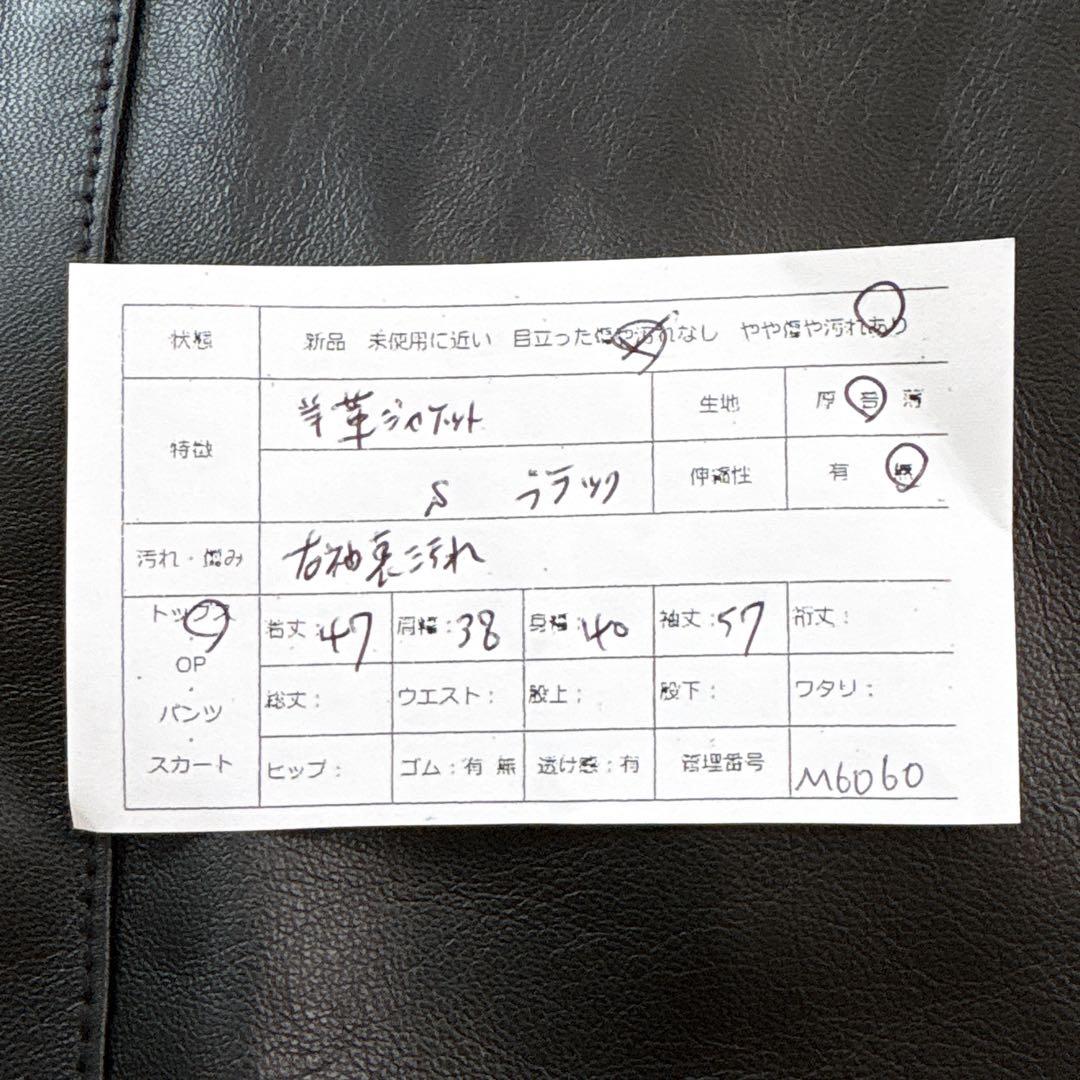 状態 新品 未使用に近い 目立った傷や汚れなし やや傷や汚れあり
特徴 羊革ジャケット 生地 厚 普 薄
S ブラック 伸縮性 有 無
汚れ・傷み 右袖裏汚れ
トップス 着丈:47 肩幅:38 身幅:40 袖丈:57 裄丈:
・
OP 総丈: ウエスト: 股上: 股下: ワタリ:
・
パンツ
・
スカート ヒップ: ゴム:有 無 透け感:有 管理番号 M6060